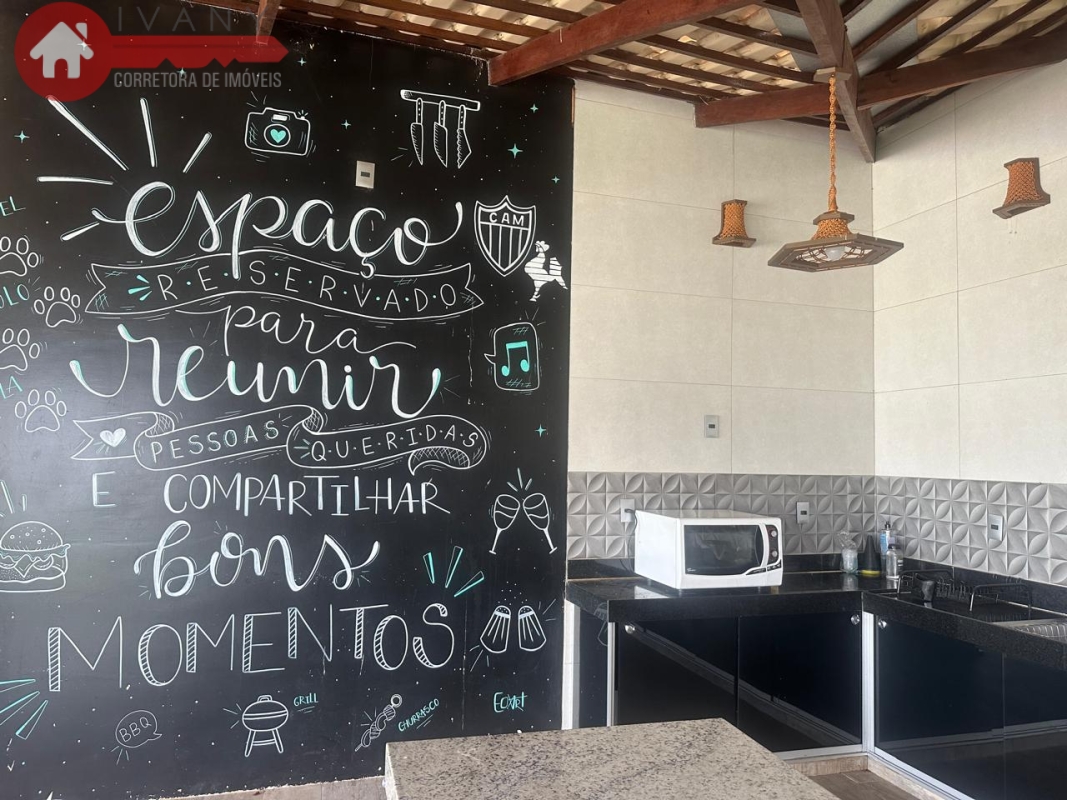 IVAN
CORRETORA DE IMÓVEIS
espaço
RESERVADO
CAM
para
reunir
PESSOAS QUERIDAS
E COMPARTILHAR
bons
MOMENTOS
GRILL
BBQ
CHURRASCO